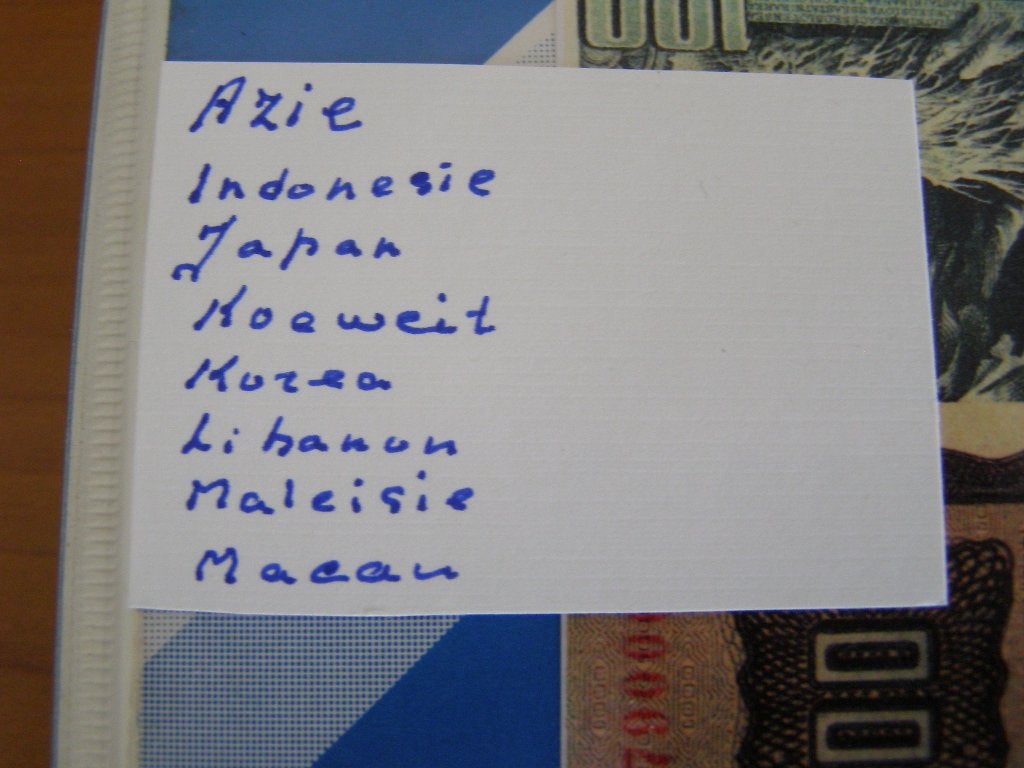 100
Azie
Indonesie
Japan
Koeweit
Korea
Libanon
Maleisie
Macau